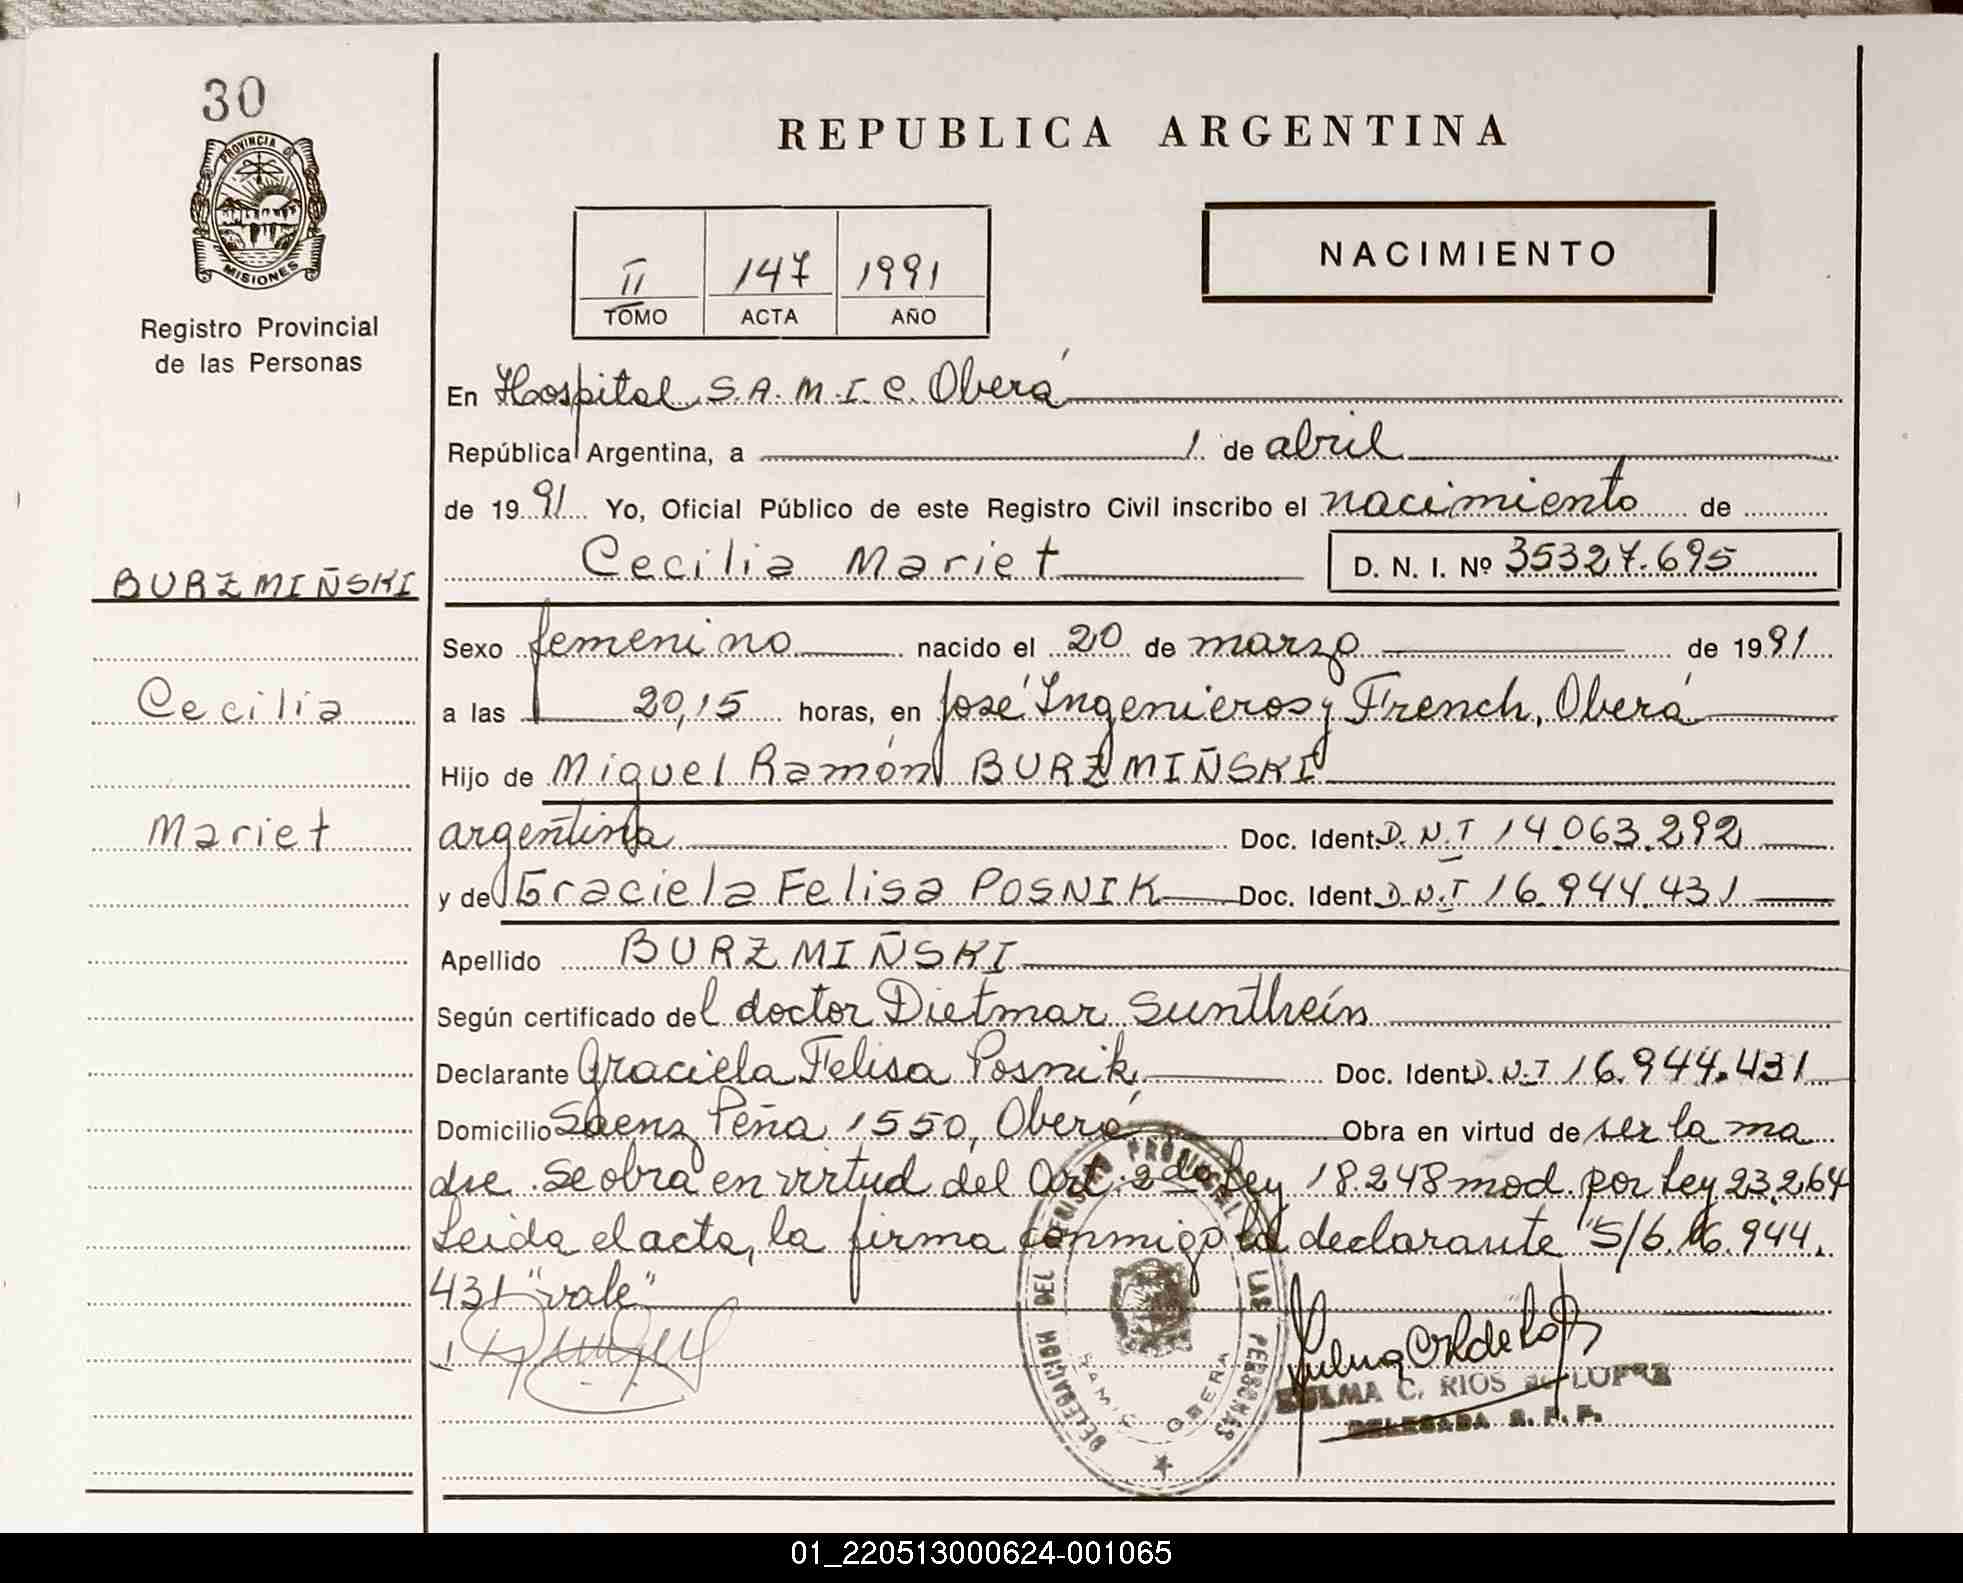 30
PROVINCIA DE
MISIONES
Registro Provincial
de las Personas
BURZMIÑSKI
Cecilia
Mariet
REPUBLICA ARGENTINA
II 147 1991
TOMO ACTA AÑO
NACIMIENTO
En Hospital S.A.M.I.C. Oberá
República Argentina, a 1 de abril
de 1991 Yo, Oficial Público de este Registro Civil inscribo el nacimiento de
Cecilia Mariet D. N. I. Nº 35327.695
Sexo femenino nacido el 20 de marzo de 1991
a las 20,15 horas, en José Ingenieros y French, Oberá
Hijo de Miguel Ramón BURZMIÑSKI
argentina Doc. Ident. D.N.I 14.063.292
y de Graciela Felisa POSNIK Doc. Ident. D.N.I 16.944.431
Apellido BURZMIÑSKI
Según certificado del doctor Dietmar Sunthein
Declarante Graciela Felisa Posnik Doc. Ident. D.N.I 16.944.431
Domicilio Saenz Peña 1550, Oberá Obra en virtud de ser la ma
dre. Se obra en virtud del Art. 2do Ley 18.248 mod. por Ley 23.264
Leida el acta, la firma conmigo la declarante "S/b 16.944.
431 "vale"
DELEGACION DEL REGISTRO PROVINCIAL DE LAS PERSONAS
SAMIC OBERA
ZULMA C. RIOS DE LOPEZ
DELEGADA R. P. P.
01_220513000624-001065